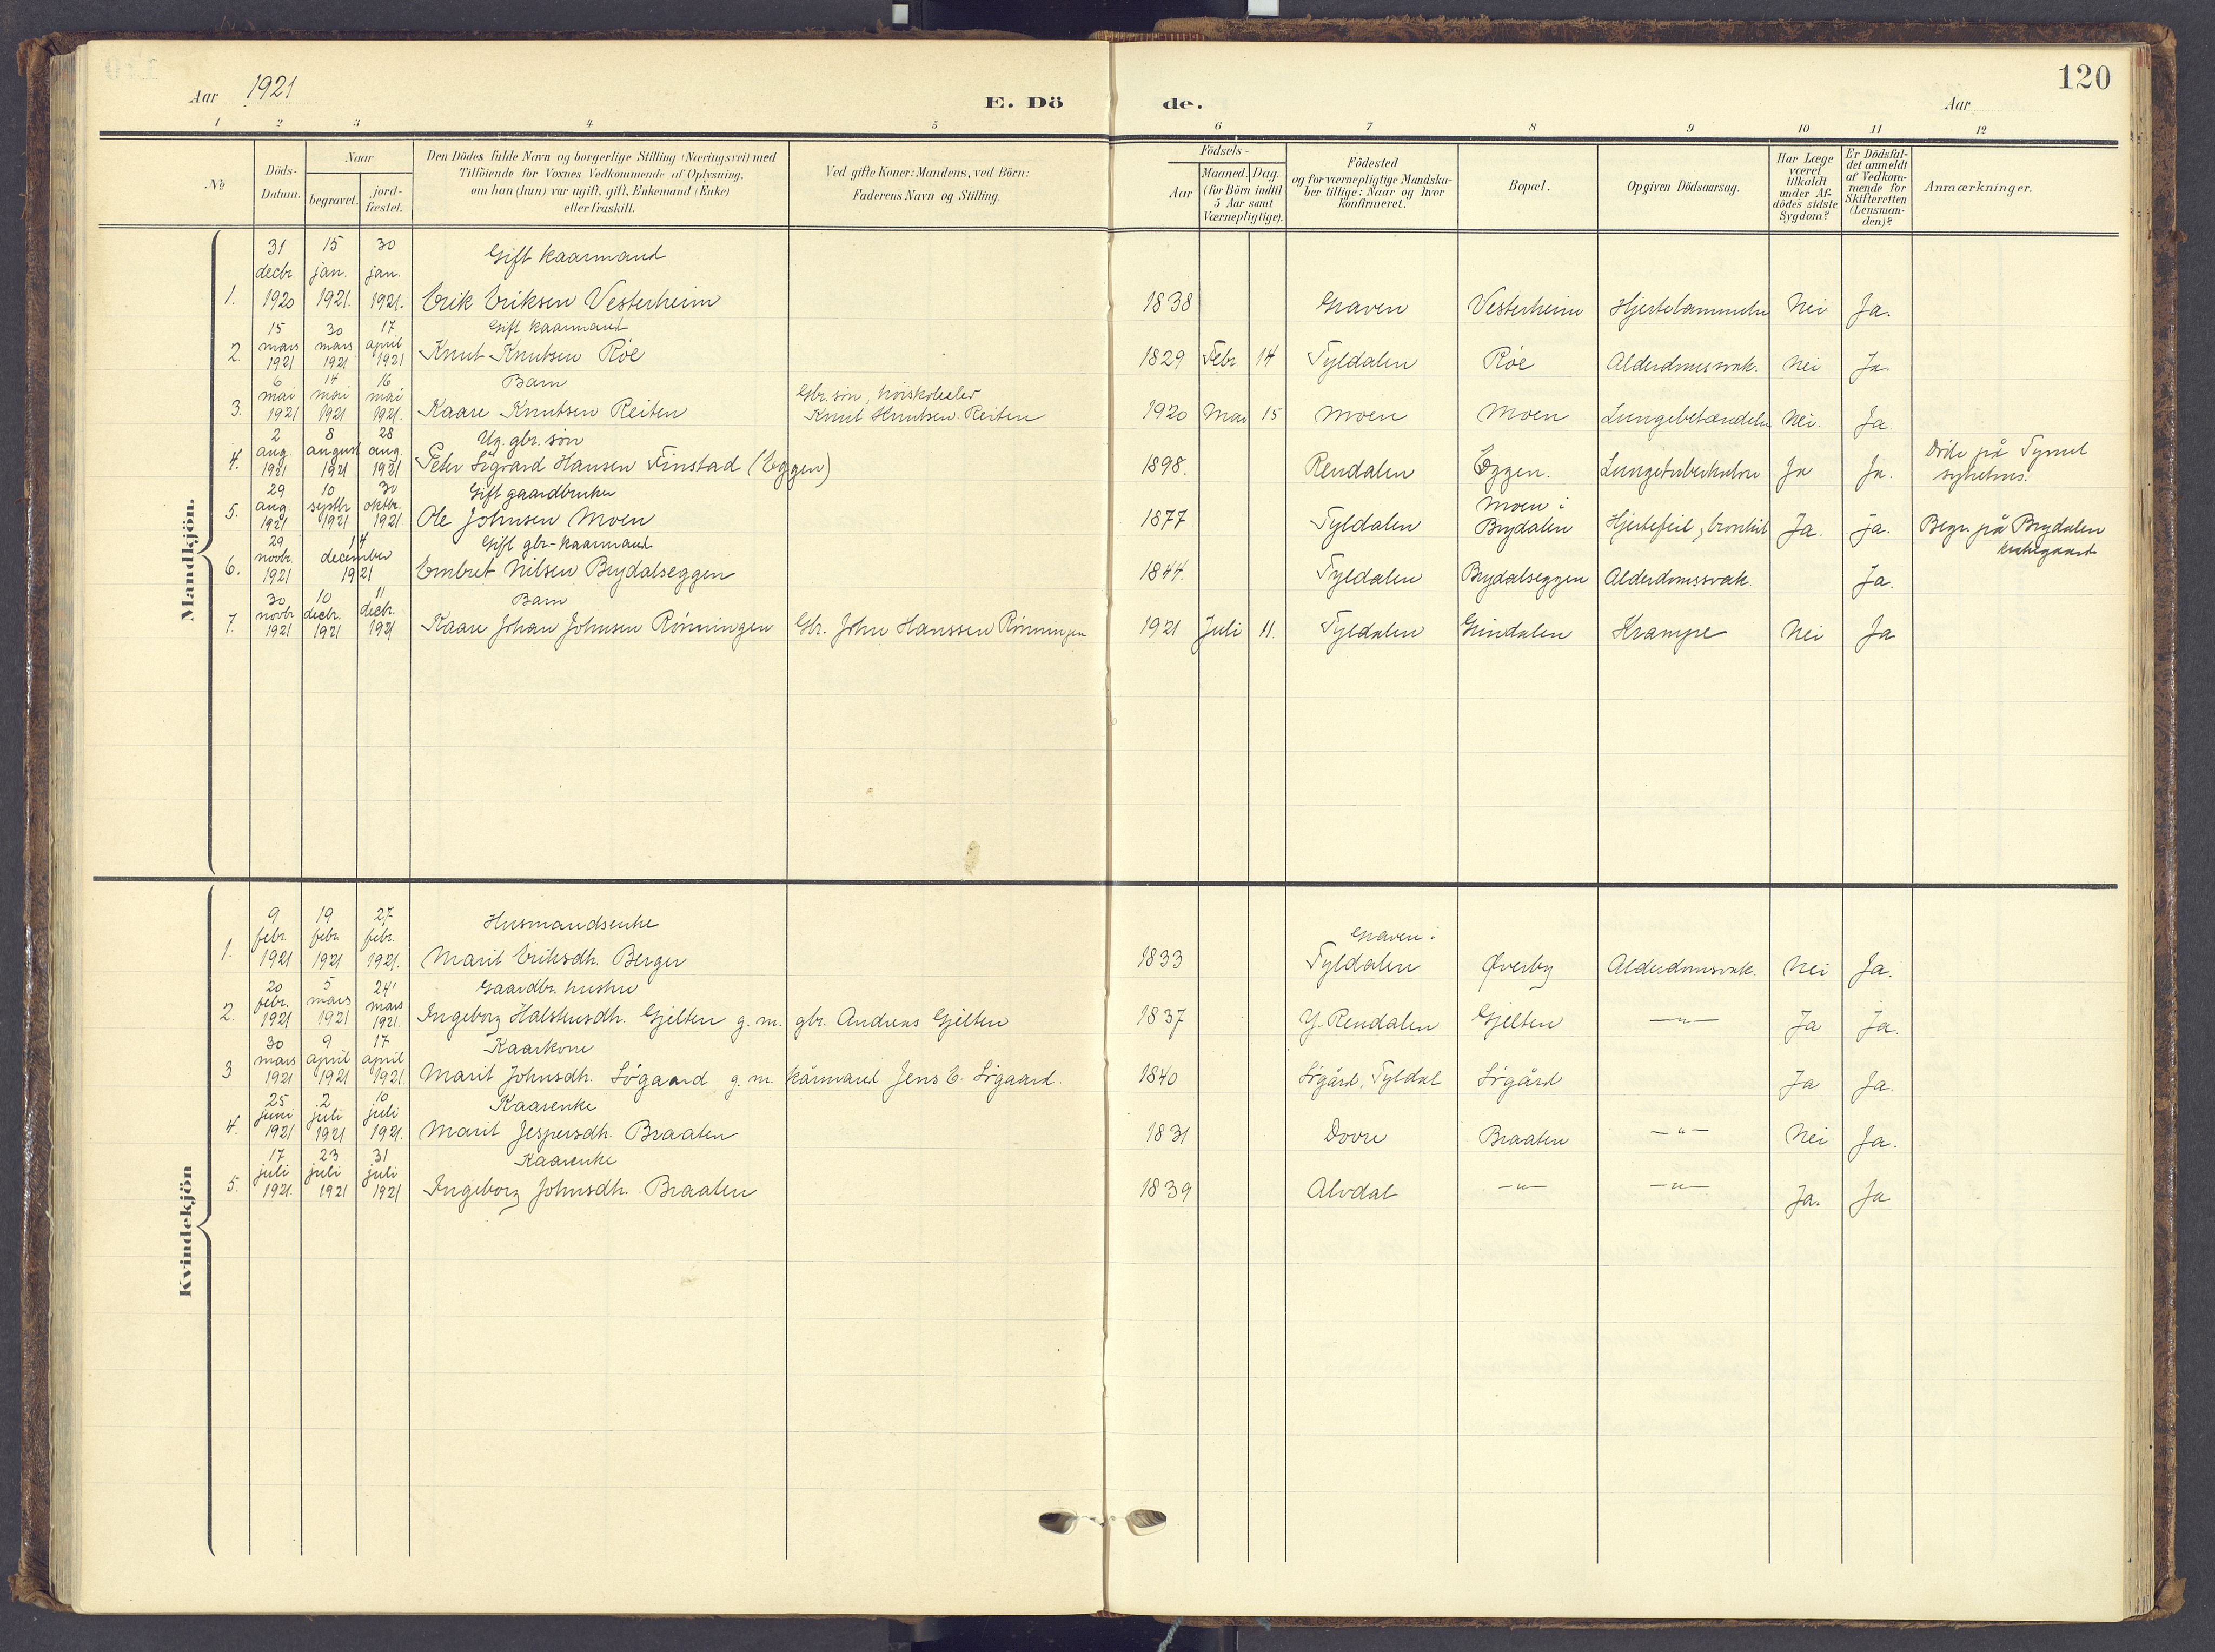 120
Aar 1921
E. Dö de.
Aar
1 2 3 4 5 6 7 8 9 10 11 12
№
Döds-Datum.
Naar begravet. jordfæstet.
Den Dödes fulde Navn og borgerlige Stilling (Næringsvei) med
Tilföiende for Voxnes Vedkommende af Oplysning,
om han (hun) var ugift, gift, Enkemand (Enke)
eller fraskilt.
Ved gifte Koner: Mandens, ved Börn:
Faderens Navn og Stilling.
Födsels-
Aar
Maaned. Dag.
(for Börn indtil
5 Aar samt
Værnepligtige).
Födested
og for værnepligtige Mandska-
ber tillige: Naar og hvor
konfirmeret.
Bopæl.
Opgiven Dödsaarsag.
Har Læge
været
tilkaldt
under Af-
dödes sidste
Sygdom?
Er Dödsfal-
det anmeldt
af Vedkom-
mende for
Skifteretten
(Lensman-
den)?
Anmærkninger.
Mandkjön.
31 decbr 1920 15 jan. 1921. 30 jan. 1921. Gift kaarmand
1. Erik Eriksen Vesterheim 1838 Graven Vesterheim Hjertelammelse Nei Ja.
15 mars 1921 30 mars 1921 17 april 1921 Gift kaarmand
2. Knut Knutsen Röe 1829 Febr. 14 Tyldalen Röe Alderdomssvak. Nei Ja
6 mai 1921 14 mai 1921 16 mai 1921. Barn Gbr. sön,
3. Kaare Knutsen Reiten Knut Knutsen Reiten 1920 Mai 15 Moen Moen Lungebetændelse Nei. Ja
2 aug. 1921 8 august 1921 28 aug. 1921 Ug. gbr. sön
4. Peter Sigvard Hansen Finstad (Eggen) 1898. Rendalen Eggen. Lungetuberkulose Ja Ja. Döde på Tynset sykehus.
29 aug. 1921 10 septbr 1921 30 oktbr. 1921 Gift gaardbruker
5. Ole Johnsen Moen 1877 Tyldalen Moen i Brydalen Hjertefeil, bronkit Ja. Ja. Begr. på Brydalen kirkegaard
29 novbr. 1921 14 december 1921 Gift gbr-kaarmand
6. Embret Nilsen Brydalseggen 1844. Tyldalen Brydalseggen Alderdomssvak. Ja.
30 novbr 1921 10 decbr. 1921 11 decbr. 1921 Barn
7. Kaare Johan Johnsen Rönningen Gbr. John Hanssen Rönningen 1921 Juli 11. Tyldalen Grindalen Krampe Nei Ja
Kvindekjön
9 febr. 1921 19 febr. 1921 27 febr. 1921. Husmandsenke
1. Marit Eriksdh. Berger 1833 Graven i Tyldalen Øverby Alderdomssvak. Nei Ja.
20 febr. 1921 5 mars 1921 24 mars 1921. Gaardbr. hustru
2. Ingeborg Halstensdh. Gjelten g. m. gbr. Andreas Gjelten 1837 Y. Rendalen Gjelten —"— Ja Ja.
30 mars 1921 9 april 1921 17 april 1921. Kaarkone
3 Marit Johnsdh. Sögaard g. m. kårmand Jens E. Sögaard. 1840 Sögård, Tyldal Sögård Ja Ja.
25 juni 1921 2 juli 1921 10 juli 1921. Kaarenke
4. Marit Jespersdh. Braaten 1831 Dovre Braaten —"— Nei Ja.
17 juli 1921. 23 juli 1921 31 juli 1921 Kaarenke
5. Ingeborg Johnsdh. Braaten 1839 Alvdal —"— —"— Ja. Ja